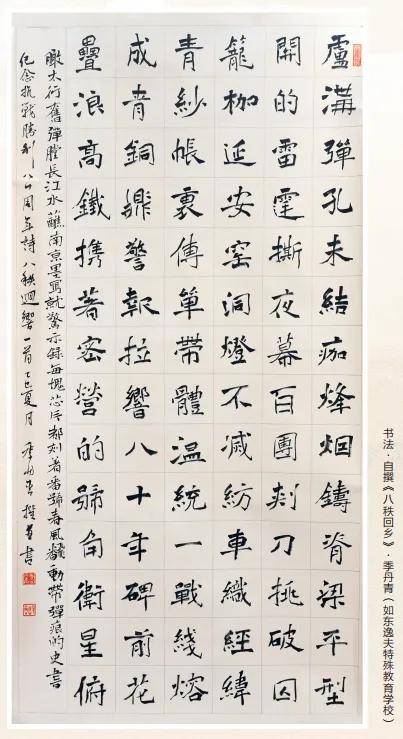 盧溝彈孔未結痂烽烟鑄脊梁平型
關的雷霆撕夜幕百團刺刀挑破囚
籠枷延安窑洞燈不减紡車織經緯
青紗帳裏傳單帶體温統一戰綫熔
成青銅鼎警報拉響八十年碑前花
疊浪高鐵携著密營的號角衛星俯
瞰太行舊彈膛長江水蘸南京墨寫就警示録每塊芯片都刻着番號春風翻動帶彈痕的史書
紀念抗戰勝利八十周年詩八秩迴響一首乙巳夏月 季丹青撰并書
书法·自撰《八秩回乡》·季丹青（如东逸夫特殊教育学校）